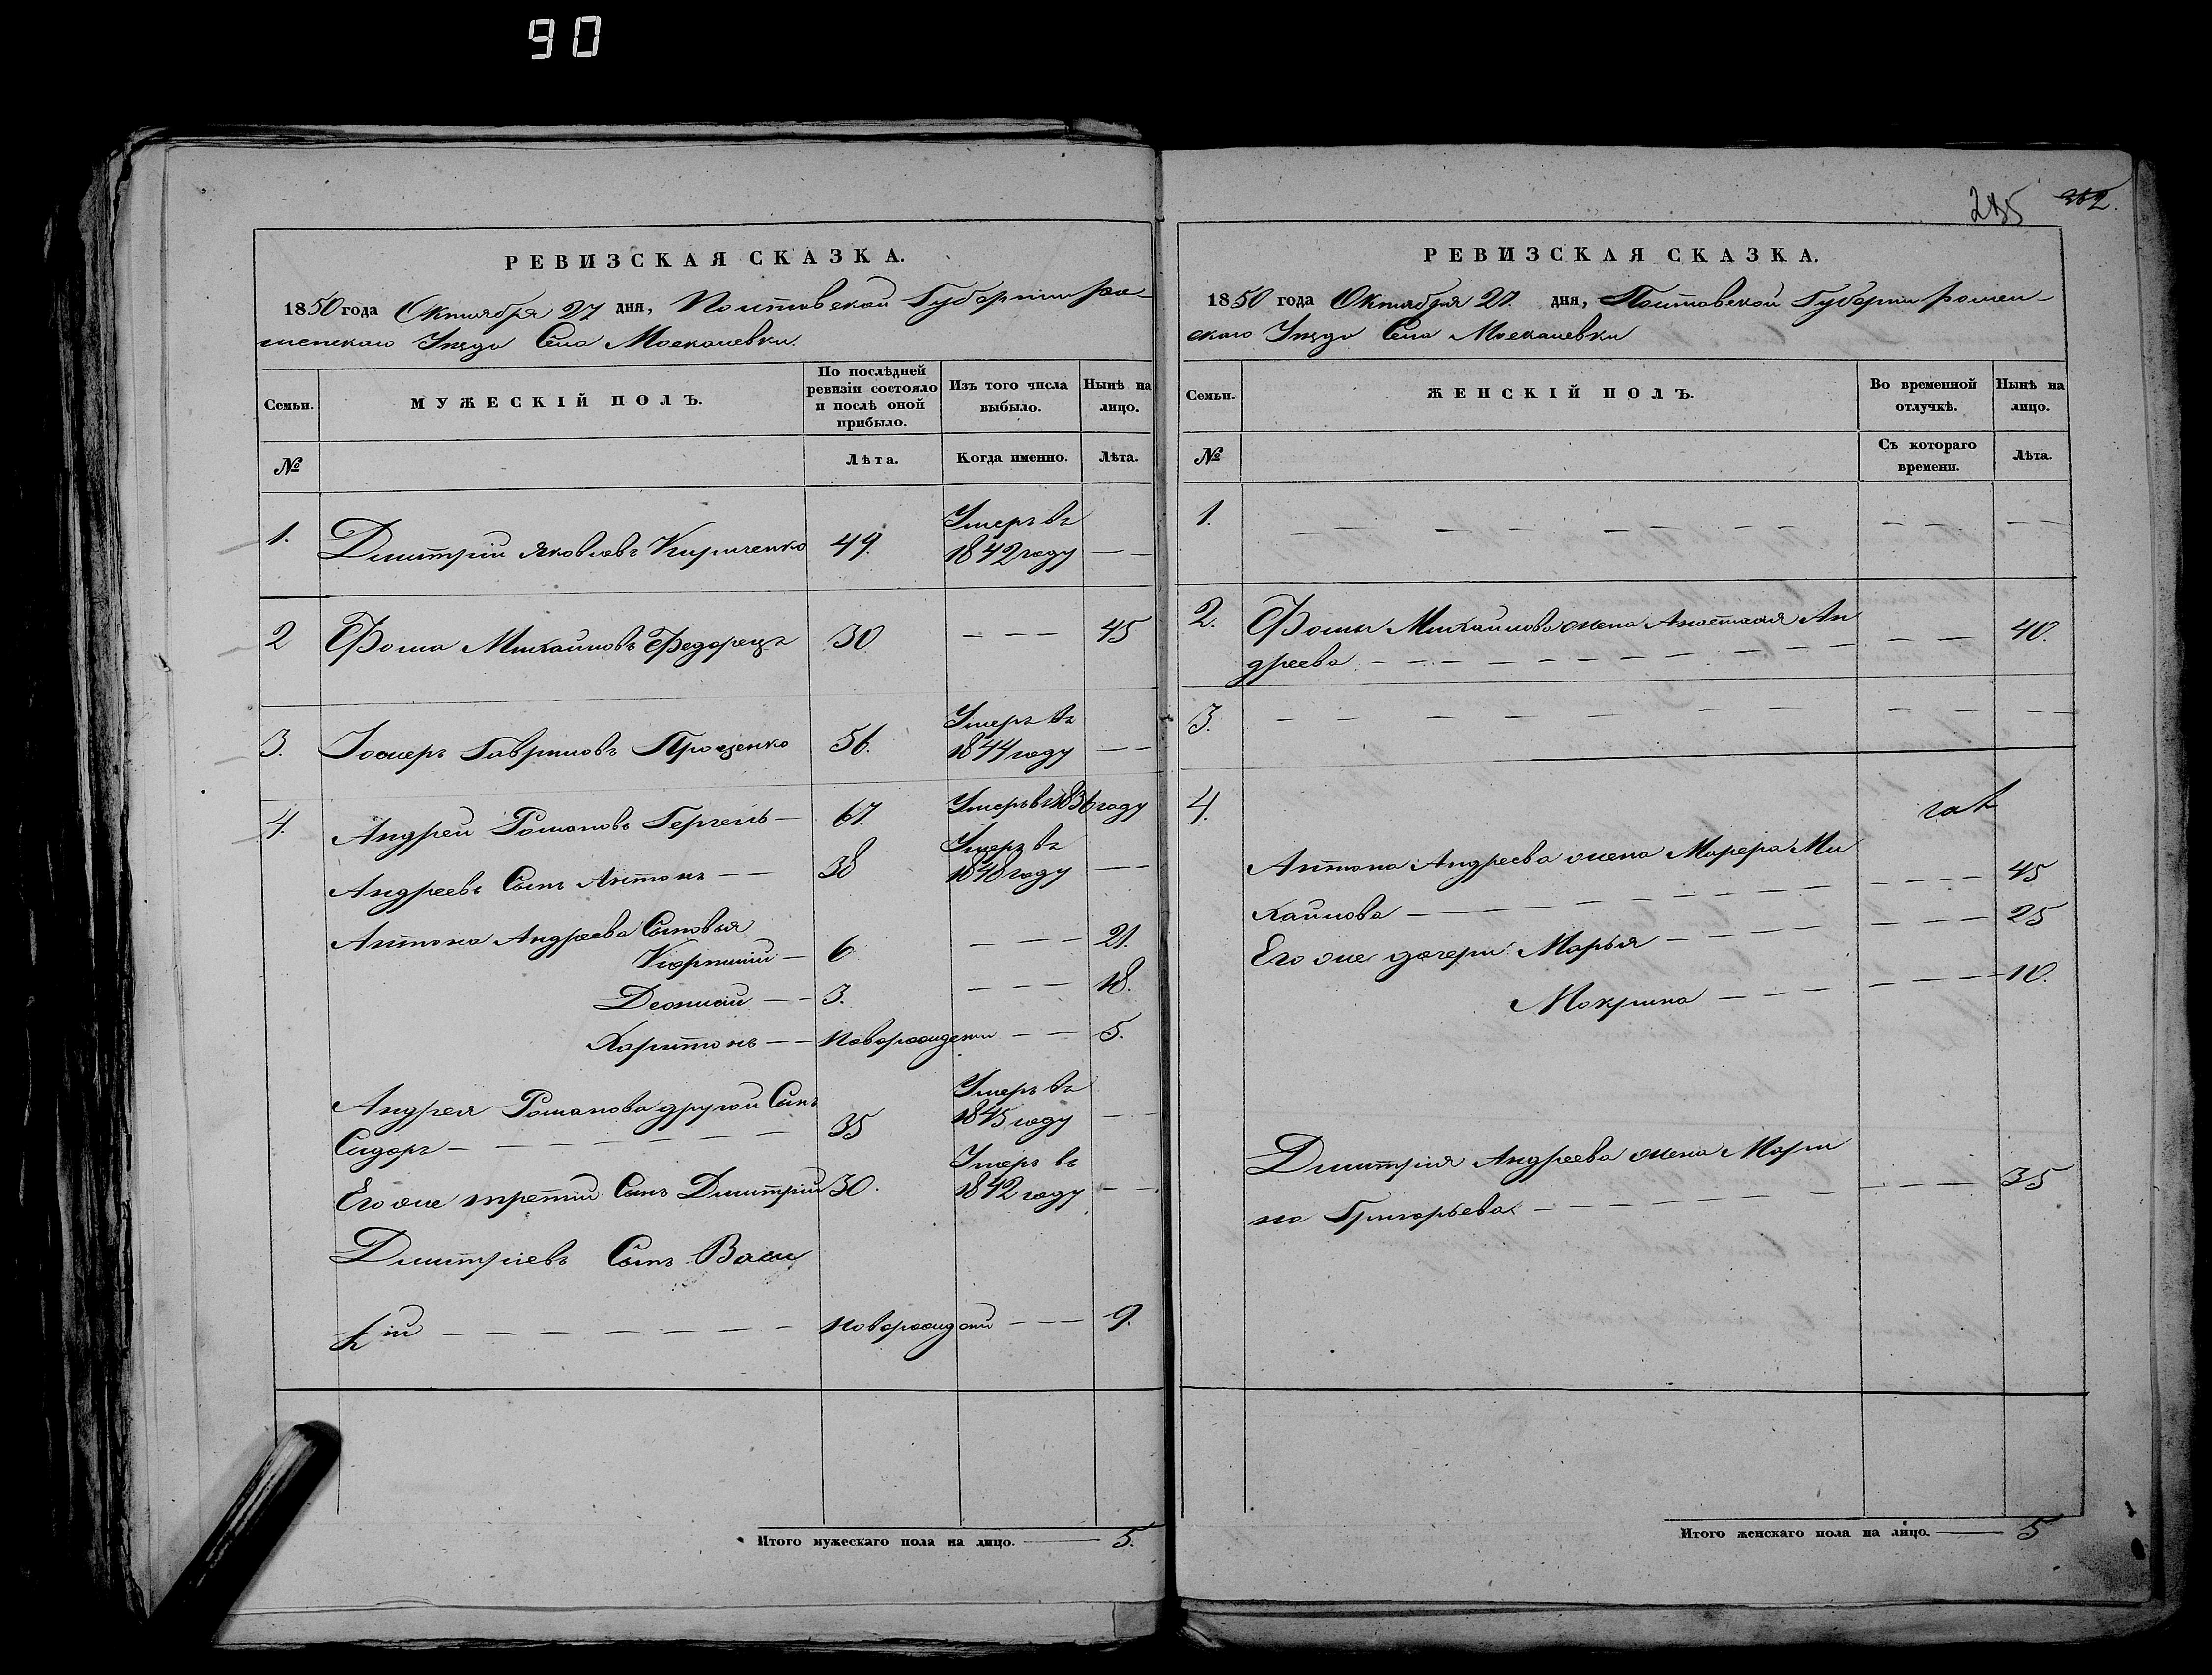 90
235 362.
РЕВИЗСКАЯ СКАЗКА.
1850 года Октября 27 дня, Полтавской Губернии Ро-
менскаго Уезда Села Москалевки.
Семьи.
МУЖЕСКІЙ ПОЛЪ.
По послѣдней ревизіи состояло и послѣ оной прибыло.
Изъ того числа выбыло.
Нынѣ на лицо.
№
Лѣта.
Когда именно.
Лѣта.
1. Дмитрій Яковлевъ Кириченко 49. Умеръ въ 1842 году — —
2 Фома Михайловъ Федорецъ 30 — — — 45
3. Гавриловъ Проценко 56. Умеръ въ 1844 году — —
4. Андрей Романовъ Гергель — 67. Умеръ въ 1836 году
Андреевъ Сынъ Антонъ — — 38 Умеръ въ 1848 году — —
Антона Андреева Сыновья
— 6 — — — 21.
Деонисій — — 3. — — — 18.
Харитонъ — — новорожденн — — 5.
Андрея Романова другой Сынъ
Сидоръ — — — — — — — 35 Умеръ въ 1845 году — —
Его же третій Сынъ Дмитрій 30. Умеръ въ 1842 году — —
Дмитріевъ Сынъ Васи
лій — — — — — — — — новорожден — — — 9.
Итого мужескаго пола на лицо. — 5.
РЕВИЗСКАЯ СКАЗКА.
1850 года Октября 27. дня, Полтавской Губерніи Ромен-
скаго Уезда Села Москалевки
Семьи.
ЖЕНСКІЙ ПОЛЪ.
Во временной отлучкѣ.
Нынѣ на лицо.
№
Съ котораго времени.
Лѣта.
1. — — — — — — — — — — — —
2. Фомы Михайлова жена Анастасія Ан
дреева — — — — — — — — — — — 40.
3. — — — — — — — — — — — —
4.
Антона Андреева жена Ми
хайлова — — — — — — — — — — — 45
Его же дочери Марья — — — — — — — — 25
Мокрина — — — — — — — 10.
Дмитрія Андреева жена Мари
на Григорьева — — — — — — — — — — 35
Итого женскаго пола на лицо. — 5